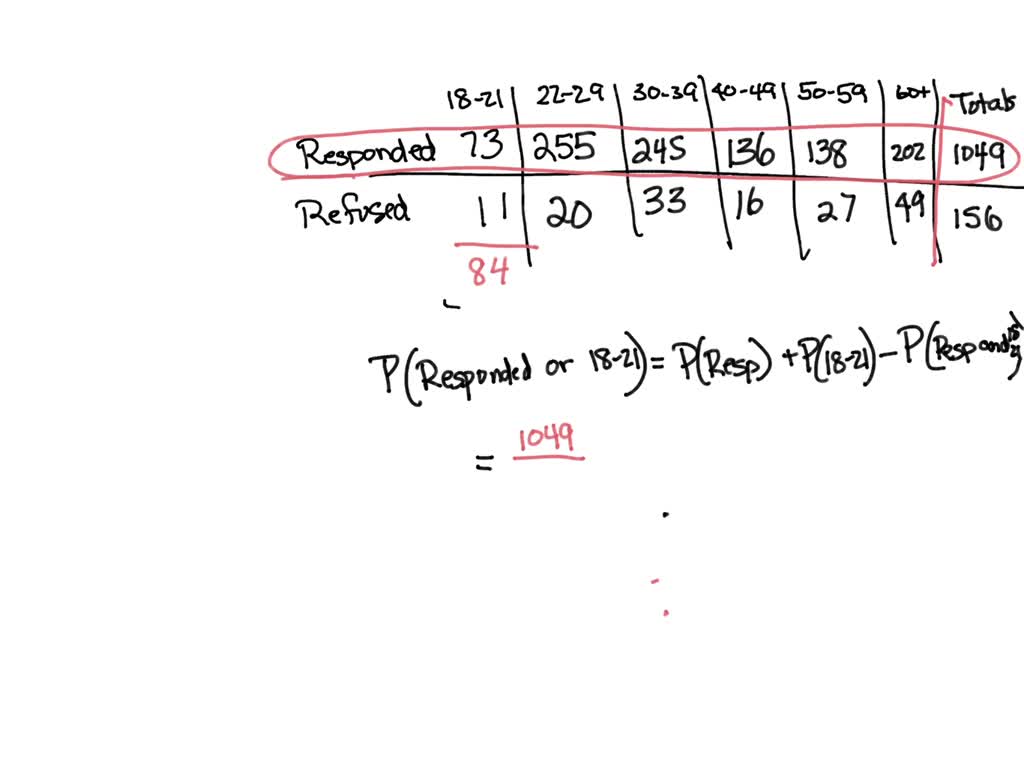 18-21 22-29 30-39 40-49 50-59 60+ Totals
Responded 73 255 245 136 138 202 1049
Refused 11 20 33 16 27 49 156
84
P(Responded or 18-21) = P(Resp) + P(18-21) - P(Resp and
= 1049